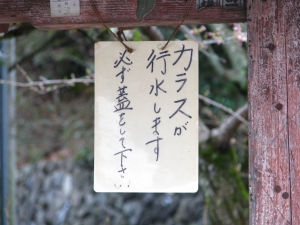 カラスが
行水します
必ず蓋をして下さい